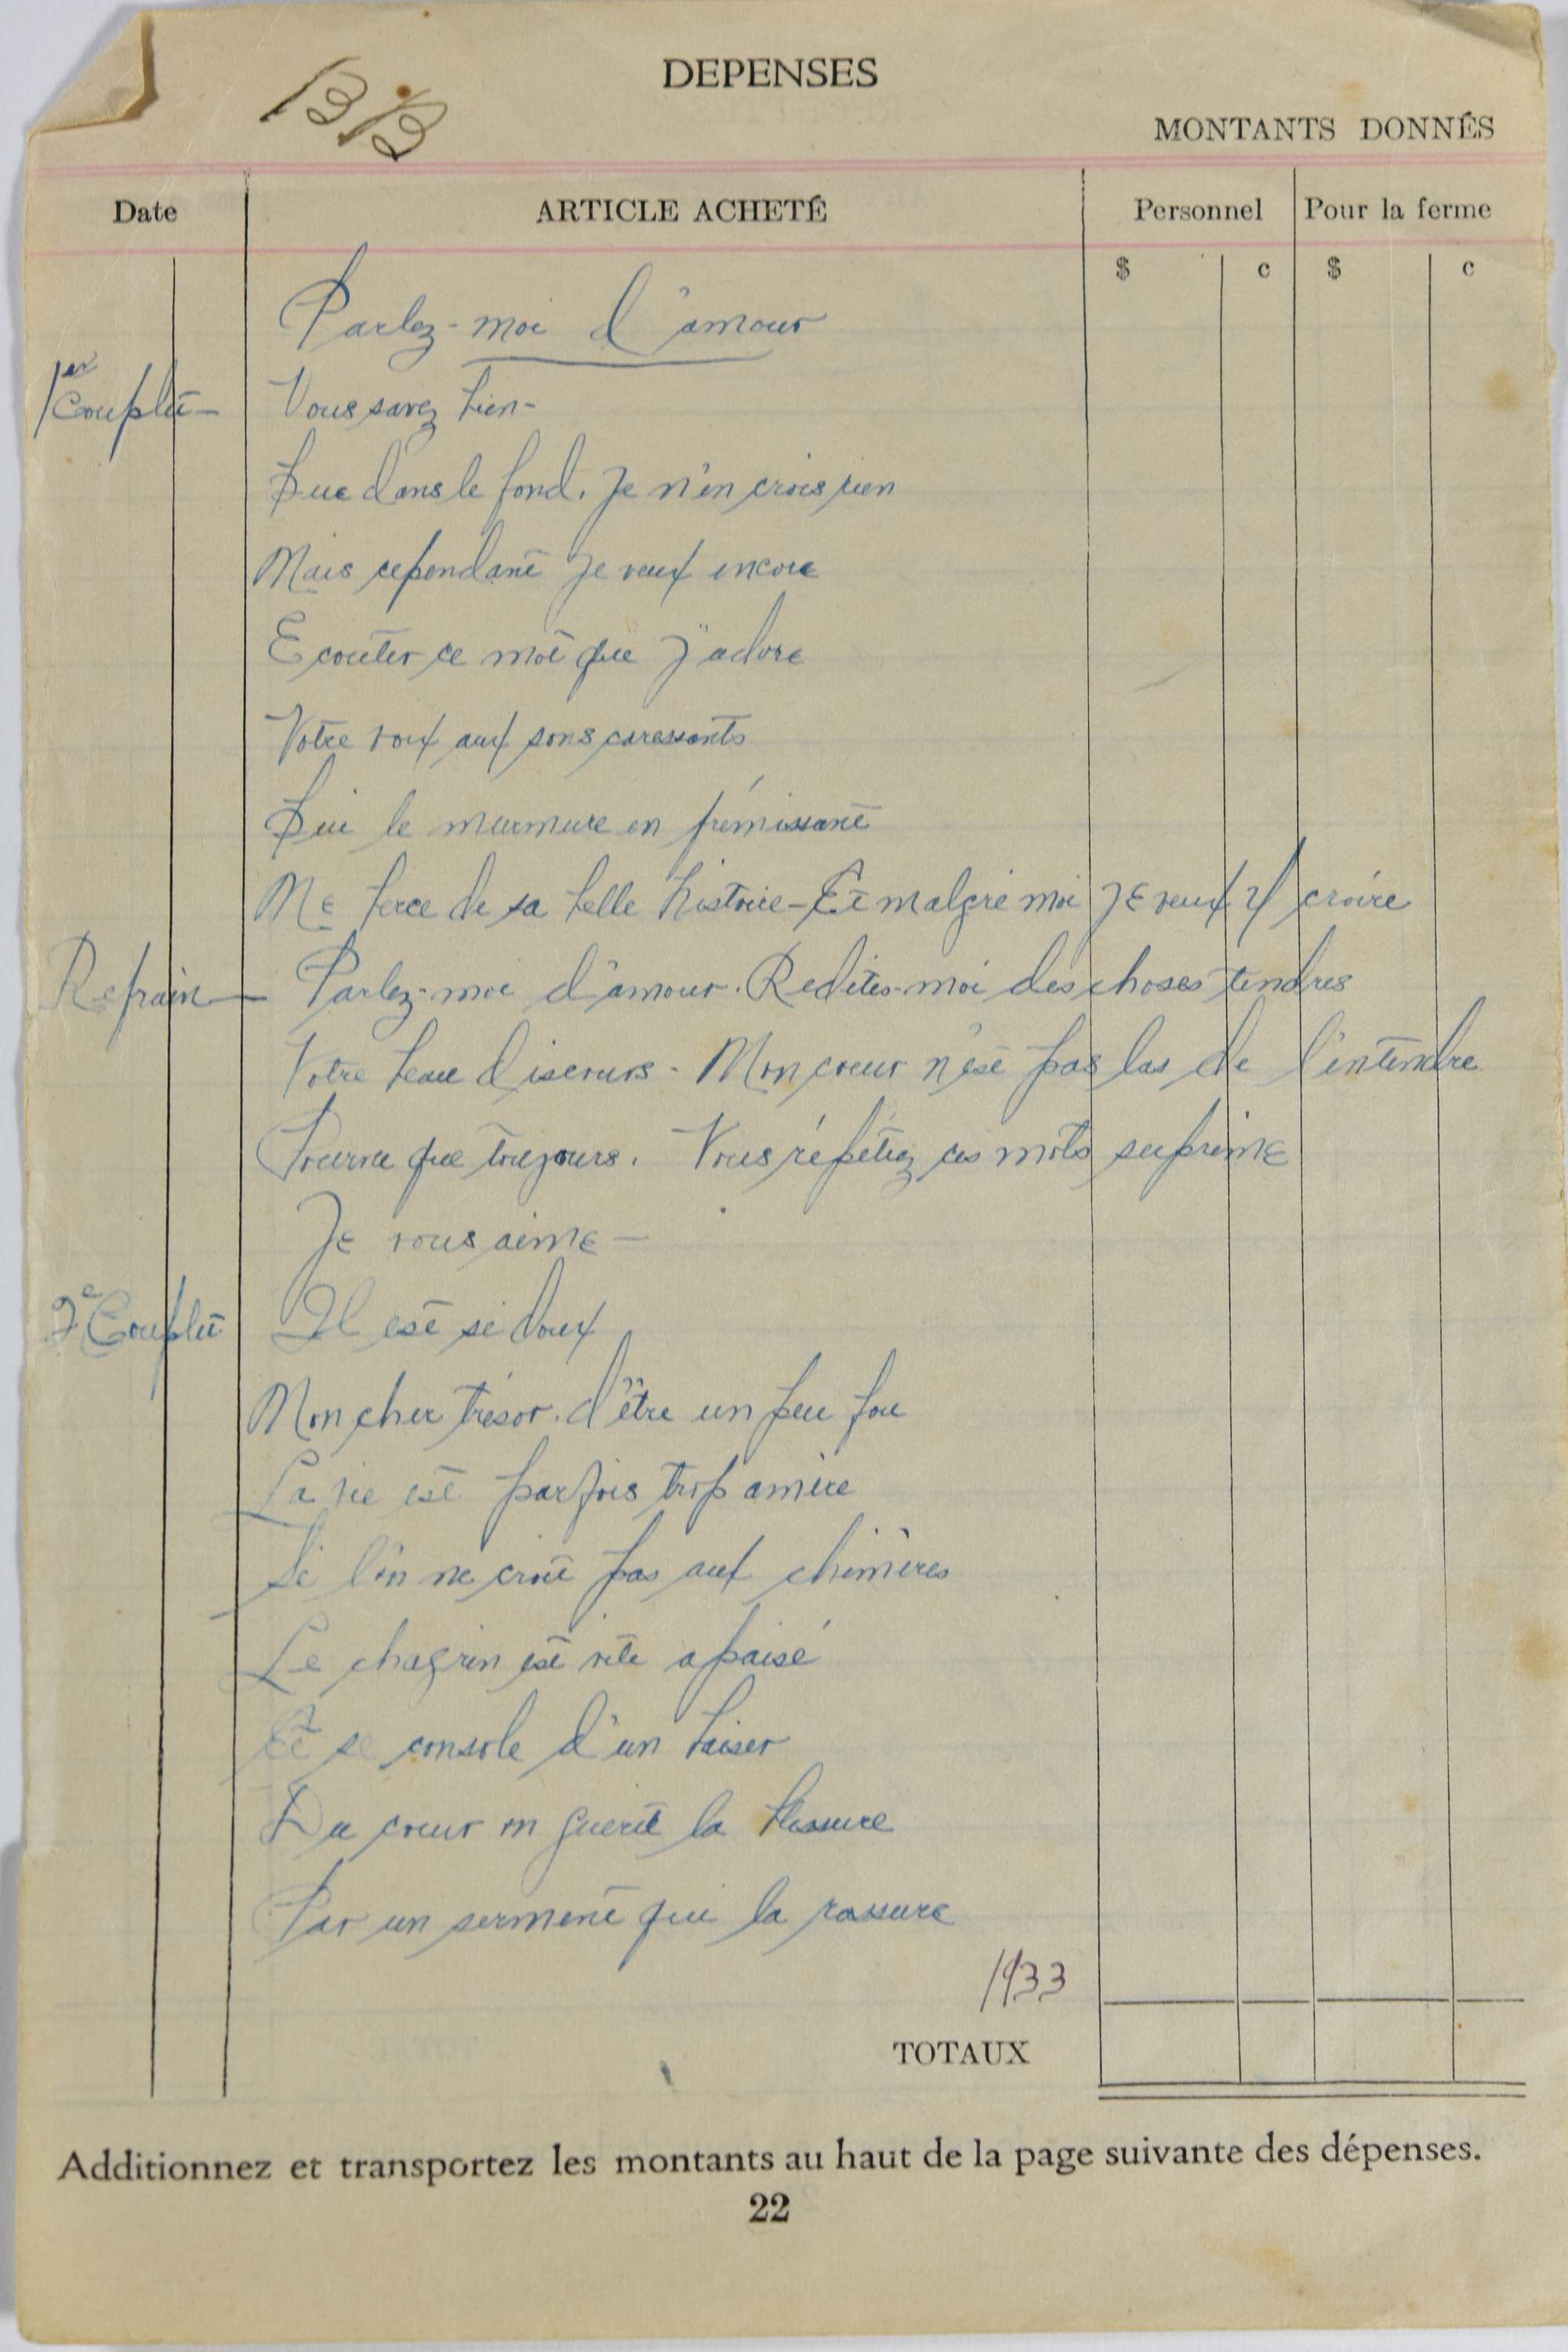 DEPENSES
MONTANTS DONNÉS
Date ARTICLE ACHETÉ Personnel Pour la ferme
$ c $ c
Parlez-moi d'amour
1er Couplet - Vous savez bien -
Que dans le fond. Je n'en crois rien
Mais cependant Je veux encore
Ecouter ce mot que J'adore
Votre voix aux sons caressants
Qui le murmure en frémissant
Me berce de sa belle histoire - Et malgré moi Je veux y croire
Refrain - Parlez-moi d'amour. Redites-moi des choses tendres
Votre beau discours - Mon coeur n'est pas las de l'entendre
Pourvu que toujours. Vous répétiez ces mots suprême
Je vous aime -
2e Couplet Il est si doux
Mon cher trésor. d'être un peu fou
La vie est parfois trop amère
Si l'on ne croit pas aux chimères
Le chagrin est vite apaisé
Et se console d'un baiser
Du coeur on guérit la blessure
Par un serment qui la rassure
1933
TOTAUX
Additionnez et transportez les montants au haut de la page suivante des dépenses.
22